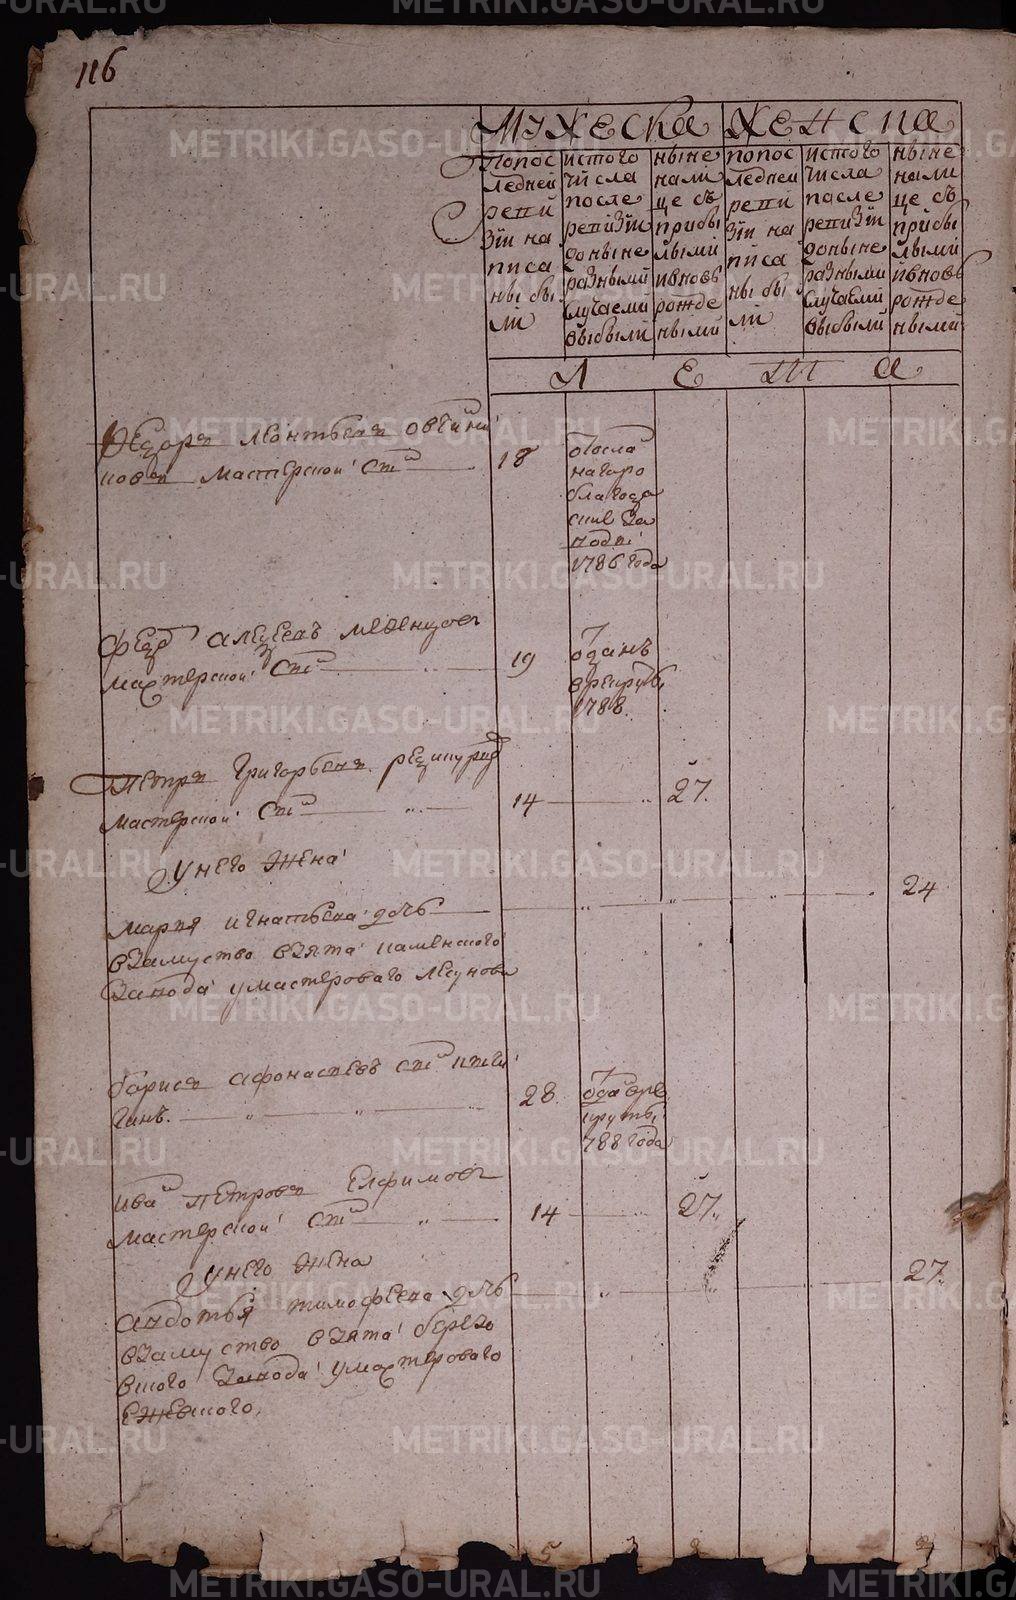 METRIKI.GASO-URAL.RU
116
Мужеска Женска
По пос
ледней
реви
зiи на
писа
ны бы
ли
ис того
числа
после
ревизiи
до ныне
разными
случаеми
выбыли
ныне
нали
це съ
прибы
лыми
и вновь
рожде
ными
по пос
ледней
реви
зiи на
писа
ны бы
ли
ис того
числа
после
ревизiи
до ныне
разными
случаеми
выбыли
ныне
нали
це съ
прибы
лыми
и вновь
рожде
ными
Лета
Федоръ Леонтьевъ Овчин
никовъ мастерской сынъ 18
отосла
на горо
благода
тские за
воды
1786 года
Фед Алезеевъ
мастерской сынъ 19
одданъ
в рекруты
1788
Петръ Григорьевъ
мастерской сынъ 14 27.
У него жена
Марья Игнатьева дочь 24
взамуство взята каменского
завода у мастероваго
Борисъ Афонасьевъ сынъ
гинъ. 28
отда в ре
круты
788 года
Иван Петровъ Елфимовъ
мастерской сынъ 14 27.
У него жена
Авдотья Тимофеева дочь 27.
взамуство взята берего
вского завода у мастероваго
Ежевского,
5 3 2 2